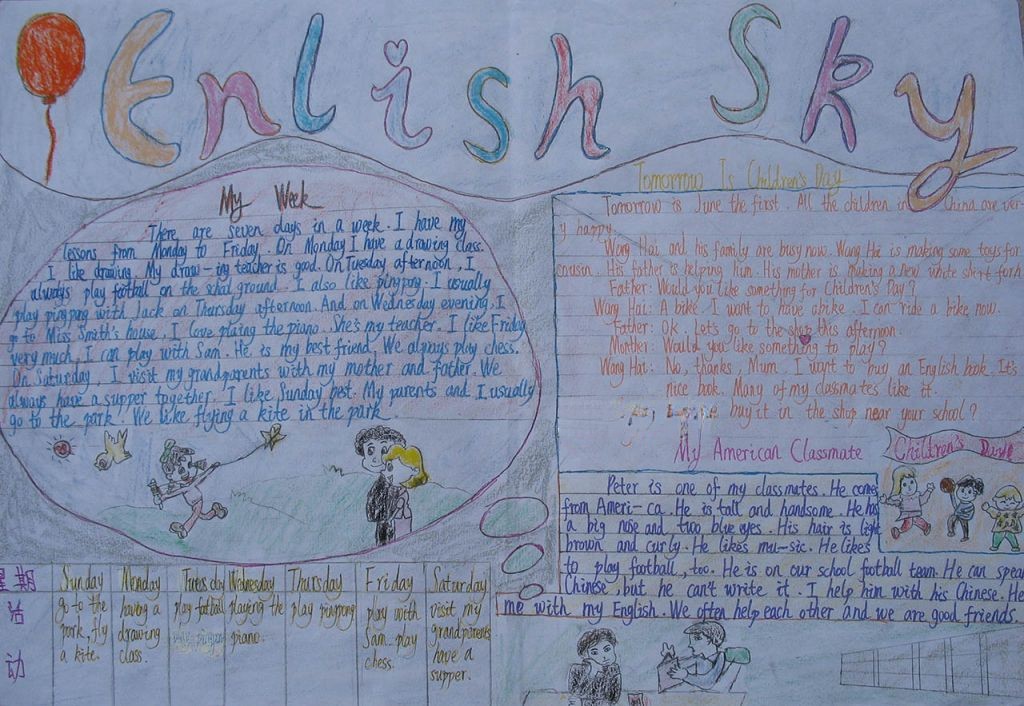 Enlish Sky
My Week
There are seven days in a week. I have my
lessons from Monday to Friday. On Monday I have a drawing class.
I like drawing. My draw-ing teacher is good. On Tuesday afternoon, I
always play fotball on the schol ground. I also like pingpong. I usually
play pingpong with Jack on Thursday afternoon. And on Wednesday evening. I
go to Miss Smith's house. I love plaing the piano. She's my teacher. I like Friday
very much. I can play with Sam. He is my best friend. We always play chess.
On Saturday, I visit my grandparents with my mother and father. We
always have a supper together. I like Sunday best. My parents and I usually
go to the park! We like flying a kite in the park.
星期 Sunday Monday Tuesday Wednesday Thursday Friday Saturday
活动
go to the park, fly a kite.
having a drawing class.
play football
playing the piano.
play pingpong
play with Sam. play chess.
visit my grandparents have a supper.
Tomorrow Is Children's Day
Tomorrow is June the first. All the children in China are ver-
y happy.
Wang Hai and his family are busy now. Wang Hai is making some toys for
cousin. His father is helping him. His mother is making a new white shirt for h
Father: Would you like something for Children's Day?
Wang Hai: A bike. I want to have a bike. I can ride a bike now.
Father: Ok. Let's go to the shop this afternoon.
Monther: Would you like something to play?
Wang Hai: No, thanks, Mum. I want to buy an English book. It's
nice book. Many of my classmates like it.
buy it in the shop near your school?
My American Classmate
Children's Day
Peter is one of my classmates. He comes
from Ameri-ca. He is tall and handsome. He has
a big nose and two blue eyes. His hair is light
brown and curly. He likes mu-sic. He likes
to play football, too. He is on our school football team. He can spea
Chinese, but he can't write it. I help him with his Chinese. He
me with my English. We often help each other and we are good friends.